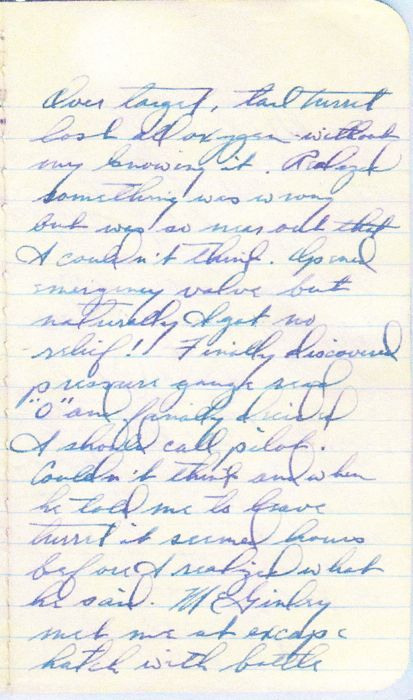 Over target, tail turret
lost all oxygen without
my knowing it. Realized
something was wrong
but was so near out that
I couldn't think. Opened
emergency valve but
naturally I got no
relief! Finally discovered
pressure gauge read
"0" and finally decided
I should call pilot.
Couldn't think and when
he told me to leave
turret it seemed hours
before I realized what
he said. McGinley
met me at escape
hatch with bottle